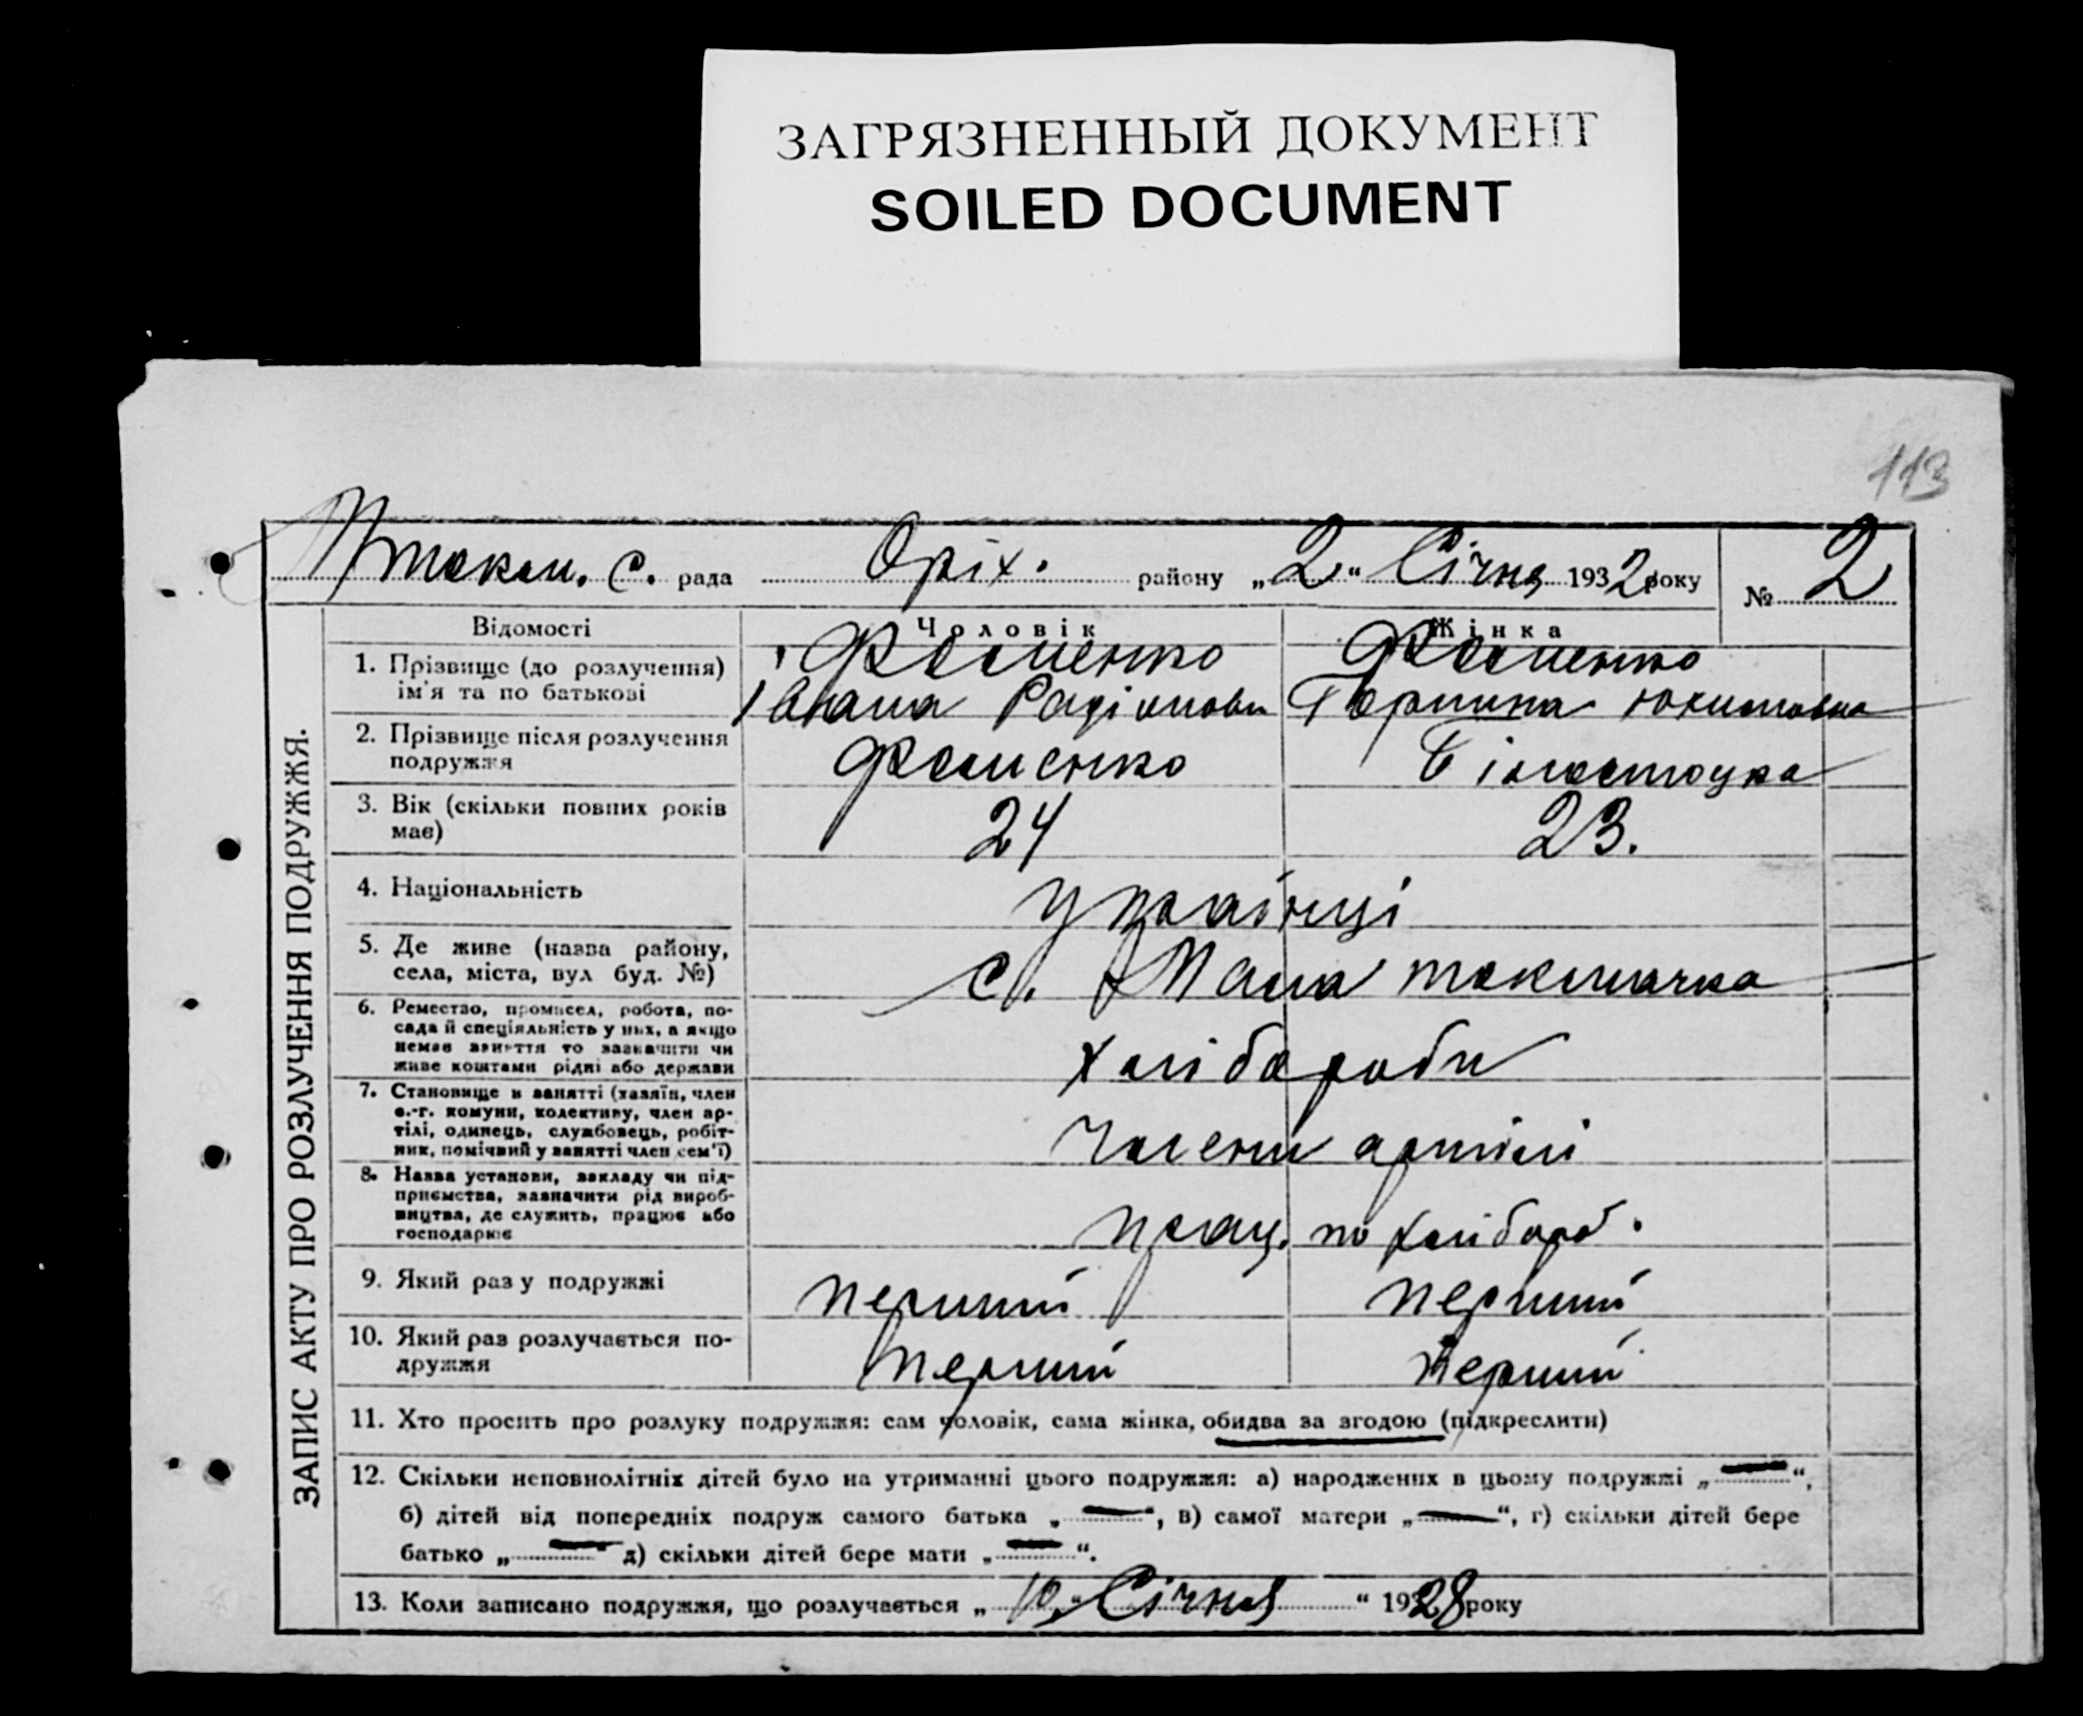 ЗАГРЯЗНЕННЫЙ ДОКУМЕНТ
SOILED DOCUMENT
113
с. рада Оріх. району „2“ Січня 1932 року № 2
ЗАПИС АКТУ ПРО РОЗЛУЧЕННЯ ПОДРУЖЖЯ.
Відомості Чоловік Жінка
1. Прізвище (до розлучення) Фоменко Фоменко
ім'я та по батькові Івана
2. Прізвище після розлучення
подружжя Фоменко
3. Вік (скільки повних років
має) 24 23.
4. Національність українці
5. Де живе (назва району,
села, міста, вул буд. №) с. Мала токмачка
6. Ремество, промисел, робота, по-
сада й спеціяльність у них, а якщо
немає заняття то зазначити чи
живе коштами рідні або держави хлібороби
7. Становище в занятті (хазяїн, член
с.-г. комуни, колективу, член ар-
тілі, одинець, службовець, робіт-
ник, помічний у занятті член сем'ї) члени артілі
8. Назва установи, закладу чи під-
приємства, зазначити рід вироб-
ництва, де служить, працює або
господарює прац. по хлібороб.
9. Який раз у подружжі перший перший
10. Який раз розлучається по-
дружжя перший перший
11. Хто просить про розлуку подружжя: сам чоловік, сама жінка, обидва за згодою (підкреслити)
12. Скільки неповнолітніх дітей було на утриманні цього подружжя: а) народжених в цьому подружжі „—“,
б) дітей від попередніх подруж самого батька „—“, в) самої матери „—“, г) скільки дітей бере
батько „—“ д) скільки дітей бере мати „—“.
13. Коли записано подружжя, що розлучається „10“ Січня“ 1928 року